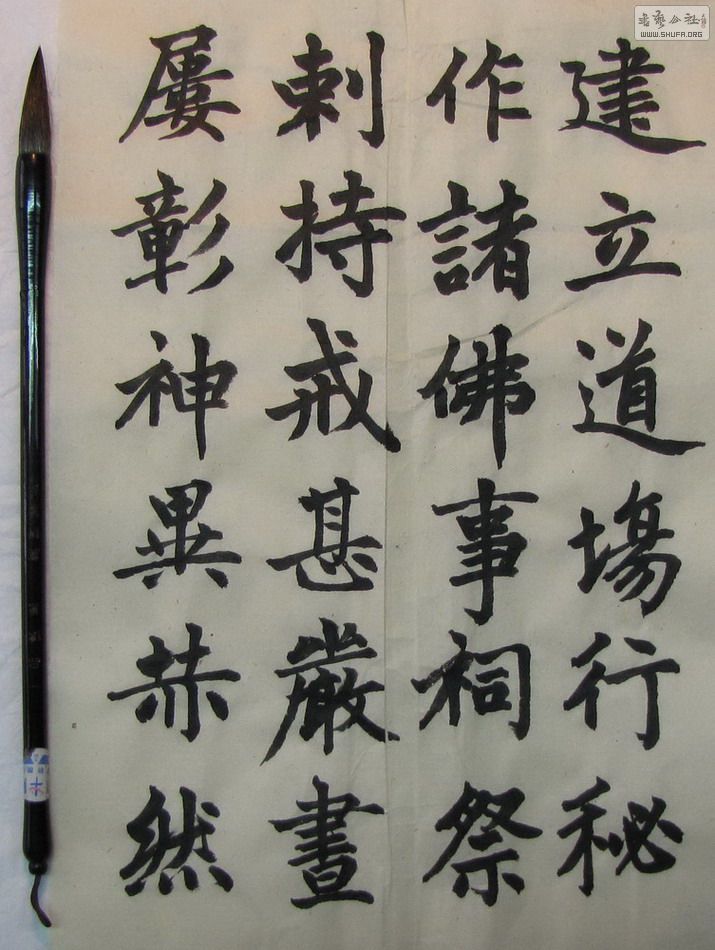 建立道塲行秘
作諸佛事祠祭
剌持戒甚嚴晝
屢彰神異赫然
書藝公社
WWW.SHUFA.ORG